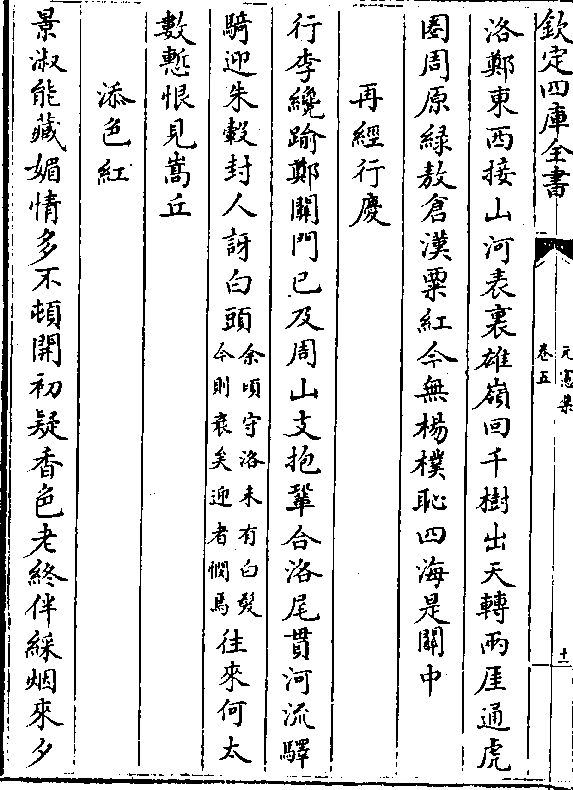 欽定四庫全書
元憲集
卷五
十一
洛鄭東西接山河表裏雄嶺回千樹出天轉兩厓通虎
圏周原緑敖倉漢粟紅今無楊樸恥四海是關中
再經行慶
行李纔踰鄭關門已及周山支抱鞏合洛尾貫河流驛
騎迎朱轂封人訝白頭余頃守洛未有白髮今則衰矣迎者憫焉往來何太
數慙恨見嵩丘
添色紅
景淑能藏媚情多不頓開初疑香色老終伴綵烟來夕